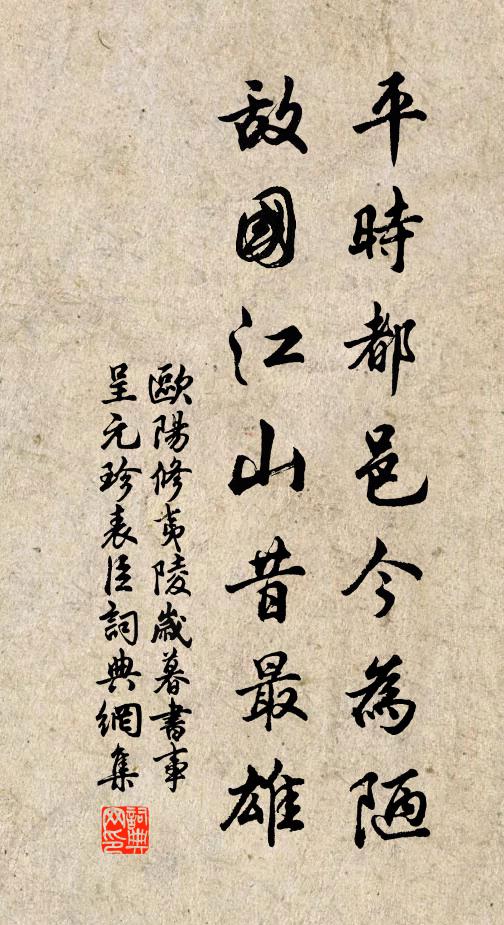 平時都邑今為陋
敵國江山昔最雄
歐陽修夷陵歲暮書事
呈元珍表臣詞典網集
詞典
网印